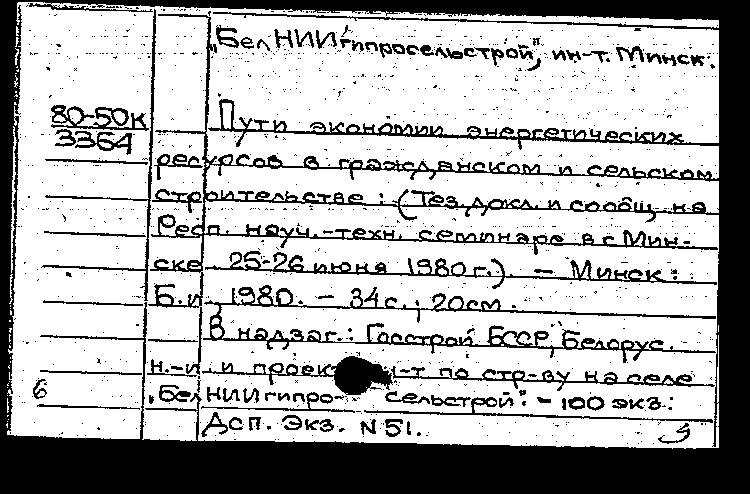 „БелНИИгипросельстрой", ин-т. Минск.
80-50к
3364
Пути экономии энергетических
ресурсов в гражданском и сельском
строительстве: (Тез. докл. и сообщ. на
Респ. науч.-техн. семинаре в г. Мин-
ске 25-26 июня 1980 г.). – Минск:
Б. и., 1980. – 34 с.; 20 см.
В надзаг.: Госстрой БССР, Белорус.
н.-и. и проект. ин-т по стр-ву на селе
„БелНИИгипро- сельстрой". – 100 экз.:
6
Дсп. Экз. N 51.